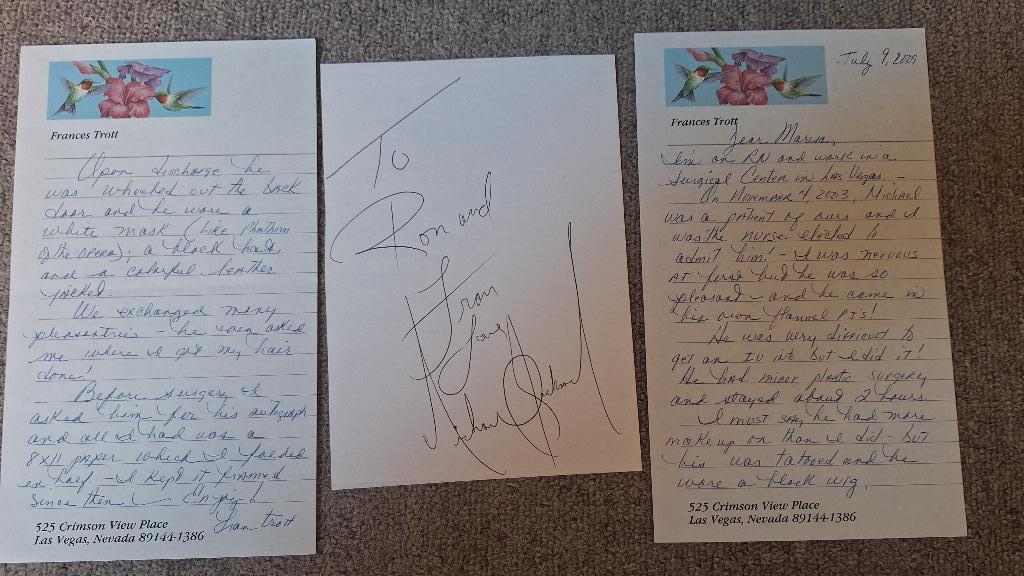 Frances Trott
Upon discharge he
was wheeled out the back
door and he wore a
white mask (like Phantom
of the opera); a black hat
and a colorful leather
jacket.
We exchanged many
pleasantries - he even asked
me where I got my hair
done!
Before surgery I
asked him for his autograph
and all I had was a
8x11 paper which I folded
in half - I kept it framed
since then! Enjoy!
Fran Trott
525 Crimson View Place
Las Vegas, Nevada 89144-1386
To
Ron and
Fran
Love
Michael Jackson
July 9, 2009
Frances Trott
Dear Maresa,
I'm an RN and work in a
Surgical Center in Las Vegas -
On November 4, 2003, Michael
was a patient of ours and I
was the nurse elected to
admit him! - I was nervous
at first but he was so
pleasant - and he came in
his own flannel PJ's!
He was very difficult to
get an IV into but I did it!
He had minor plastic surgery
and stayed about 2 hours.
I must say he had more
makeup on than I did - but
his was tatooed and he
wore a black wig.
525 Crimson View Place
Las Vegas, Nevada 89144-1386